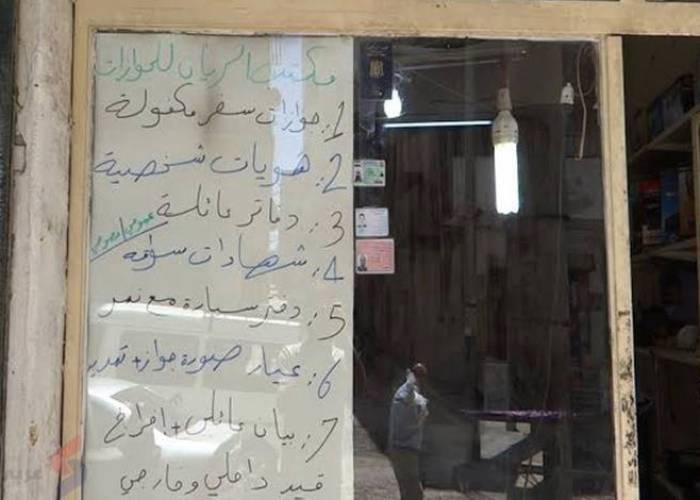 مكتب الريان للجوازات
1. جوازات سفر مكفولة
2. هويات شخصية
3. دفاتر عائلة
4. شهادات سواقة
5. دفتر سيارة مع نمر
6. عيار صورة جواز +
7. بيان عائلي + اخراج
قيد داخلي وخارجي
عربي